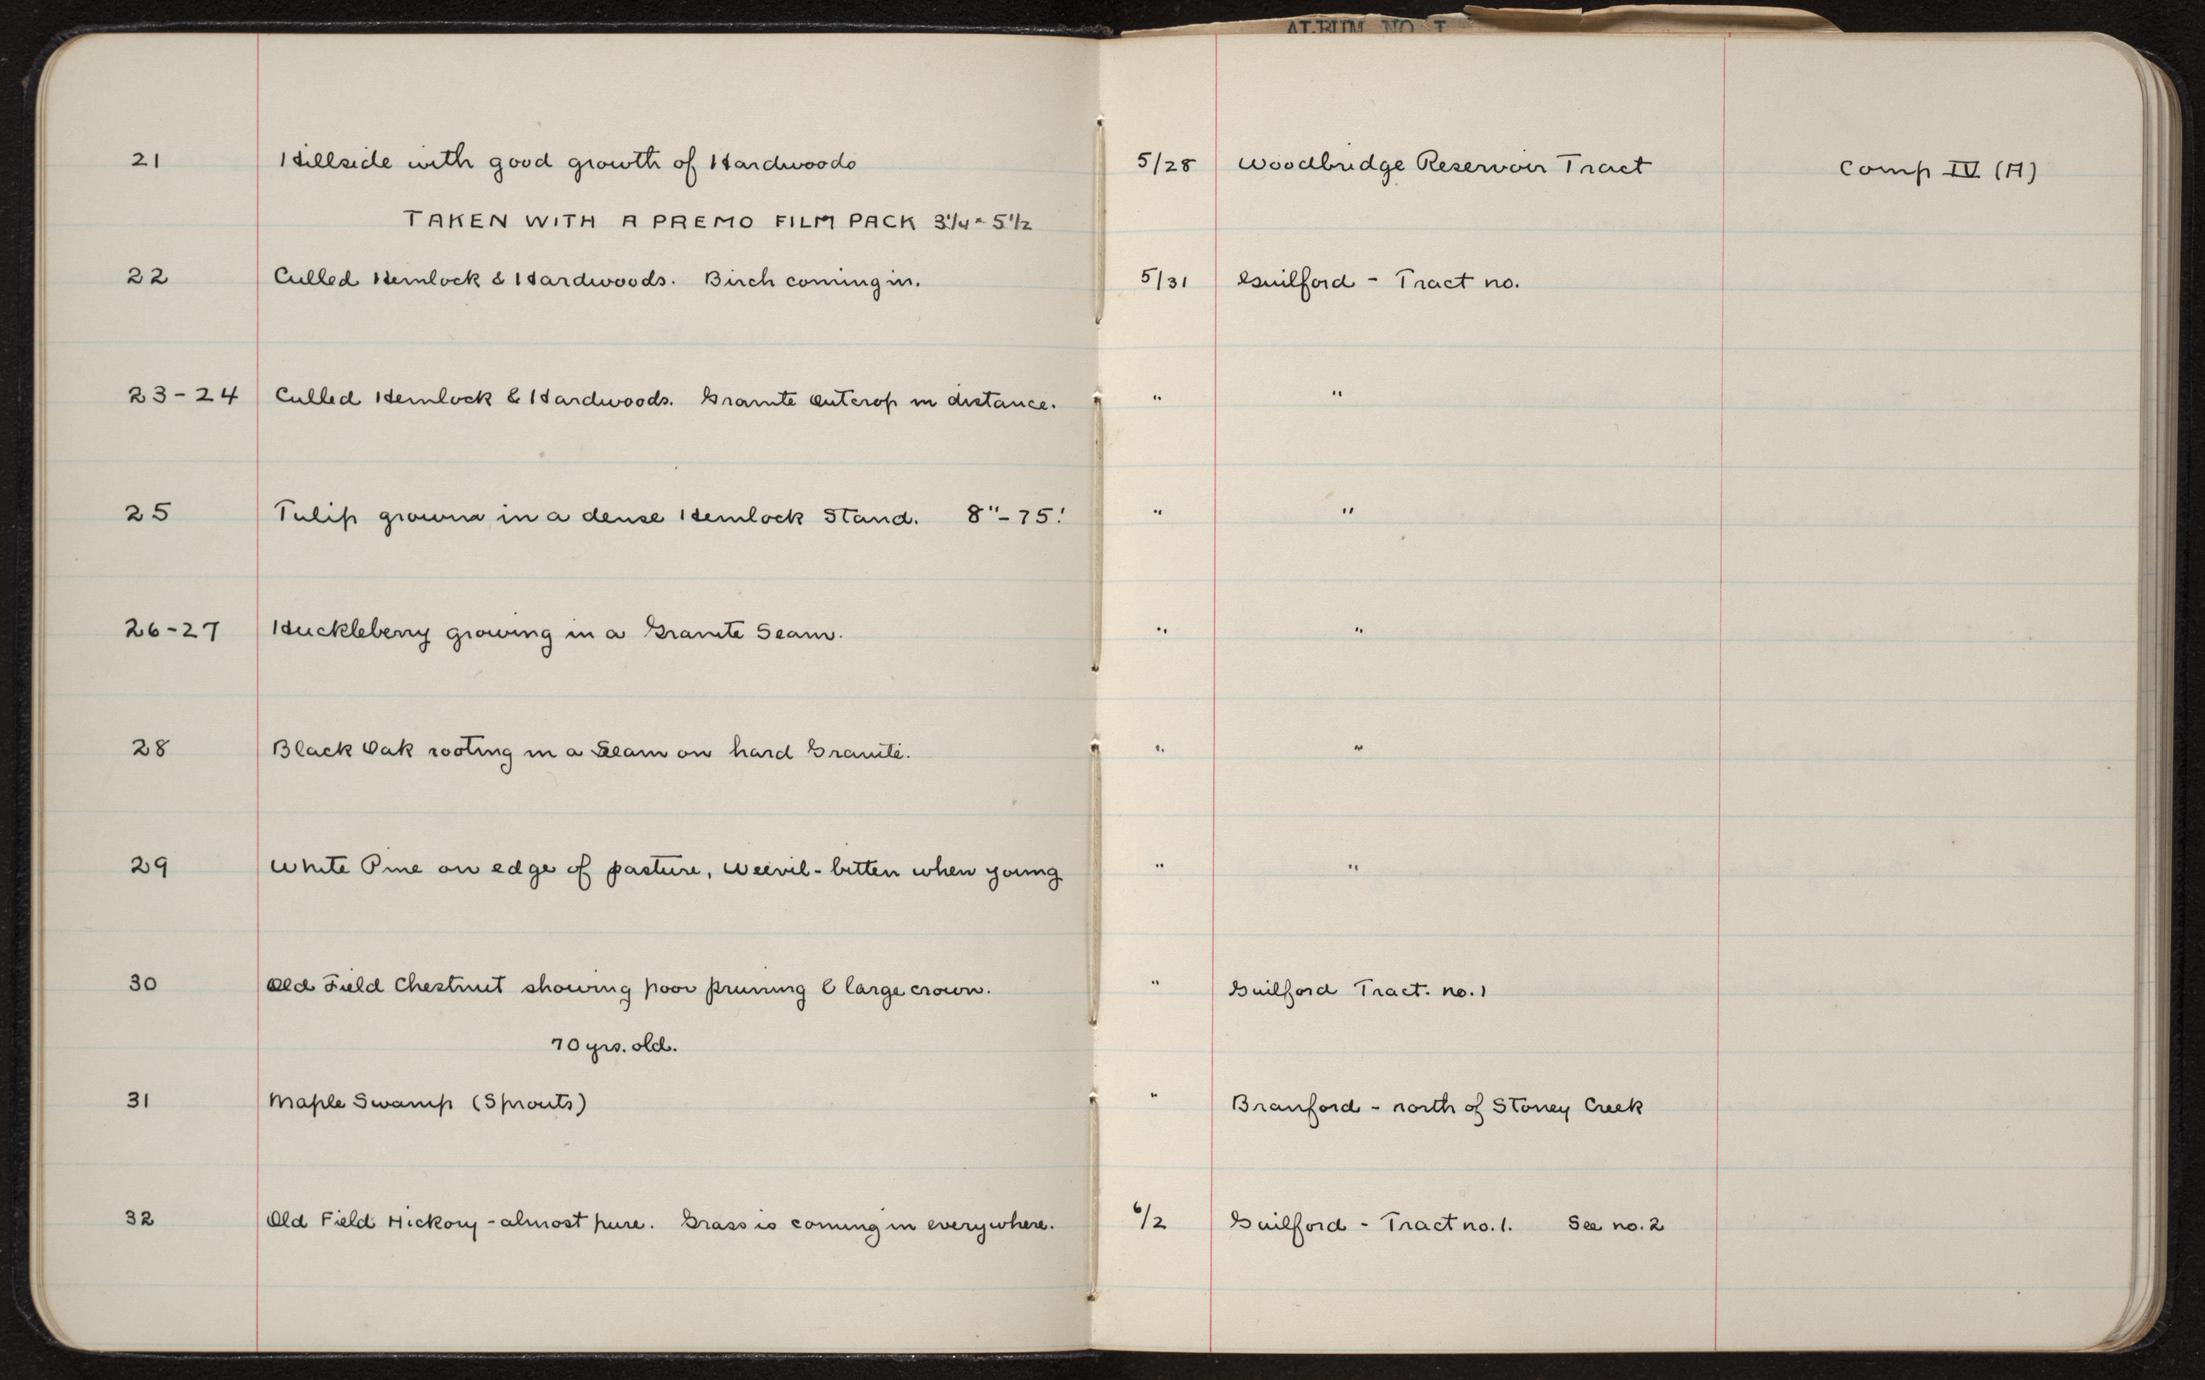 ALBUM NO. I
21 Hillside with good growth of Hardwoods 5/28 Woodbridge Reservoir Tract Comp IV (A)
TAKEN WITH A PREMO FILM PACK 3 1/4 x 5 1/2
22 Culled Hemlock & Hardwoods. Birch coming in. 5/31 Guilford - Tract no.
23-24 Culled Hemlock & Hardwoods. Granite outcrop in distance. " "
25 Tulip grown in a dense Hemlock Stand. 8"-75' " "
26-27 Huckleberry growing in a Granite Seam. " "
28 Black Oak rooting in a Seam on hard Granite. " "
29 White Pine on edge of pasture, Weevil-bitten when young " "
30 Old Field Chestnut showing poor pruning & large crown. " Guilford Tract. no. 1
70 yrs. old.
31 Maple Swamp (Sprouts) " Branford - north of Stoney Creek
32 Old Field Hickory - almost pure. Grass is coming in everywhere. 6/2 Guilford - Tract no. 1. See no. 2